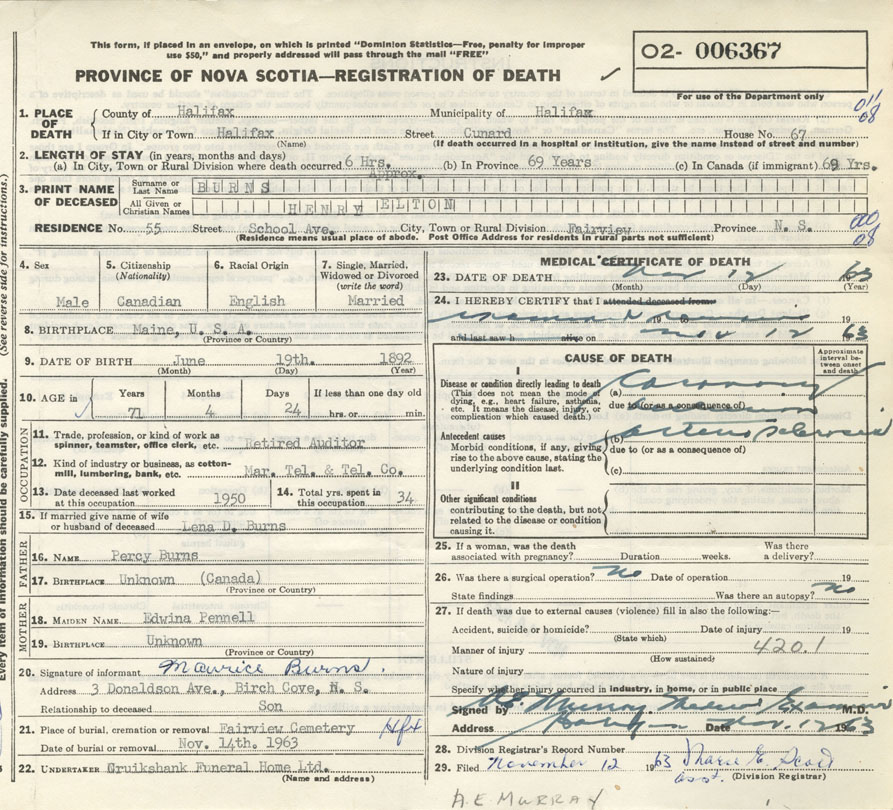 This form, if placed in an envelope, on which is printed "Dominion Statistics—Free, penalty for improper
use $50," and properly addressed will pass through the mail "FREE"
O2- 006367
PROVINCE OF NOVA SCOTIA—REGISTRATION OF DEATH ✓
For use of the Department only
011
08
1. PLACE OF DEATH { County of Halifax Municipality of Halifax
If in City or Town Halifax Street Cunard House No. 67
(Name) (If death occurred in a hospital or institution, give the name instead of street and number)
2. LENGTH OF STAY (in years, months and days)
(a) In City, Town or Rural Division where death occurred 6 Hrs. (b) In Province 69 Years (c) In Canada (if immigrant) 69 Yrs.
Approx.
3. PRINT NAME OF DECEASED { Surname or Last Name BURNS
All Given or Christian Names HENRY ELTON
RESIDENCE No. 55 Street School Ave. City, Town or Rural Division Fairview Province N. S.
(Residence means usual place of abode. Post Office Address for residents in rural parts not sufficient)
000
08
4. Sex
Male
5. Citizenship
(Nationality)
Canadian
6. Racial Origin
English
7. Single, Married, Widowed or Divorced
(write the word)
Married
8. BIRTHPLACE Maine, U. S. A.
(Province or Country)
9. DATE OF BIRTH June 19th. 1892
(Month) (Day) (Year)
10. AGE in Years Months Days If less than one day old
71 4 24 hrs. or min.
OCCUPATION
11. Trade, profession, or kind of work as
spinner, teamster, office clerk, etc. Retired Auditor
12. Kind of industry or business, as cotton-
mill, lumbering, bank, etc. Mar. Tel. & Tel. Co.
13. Date deceased last worked
at this occupation 1950
14. Total yrs. spent in
this occupation 34
15. If married give name of wife
or husband of deceased Lena D. Burns
FATHER
16. NAME Percy Burns
17. BIRTHPLACE Unknown (Canada)
(Province or Country)
MOTHER
18. MAIDEN NAME Edwina Pennell
19. BIRTHPLACE Unknown
(Province or Country)
20. Signature of informant Maurice Burns.
Address 3 Donaldson Ave., Birch Cove, N. S.
Relationship to deceased Son
21. Place of burial, cremation or removal Fairview Cemetery Hfx
Date of burial or removal Nov. 14th. 1963
22. UNDERTAKER Cruikshank Funeral Home Ltd.
(Name and address)
MEDICAL CERTIFICATE OF DEATH
23. DATE OF DEATH Nov 12 63
(Month) (Day) (Year)
24. I HEREBY CERTIFY that I attended deceased from
19
and last saw h alive on Nov 12 1963
CAUSE OF DEATH
Approximate interval between onset and death
I
Disease or condition directly leading to death
(This does not mean the mode of dying, e.g., heart failure, asthenia, etc. It means the disease, injury, or complication which caused death.)
(a) Coronary
due to (or as a consequence of)
Antecedent causes
Morbid conditions, if any, giving rise to the above cause, stating the underlying condition last.
(b) arterio sclerosis
due to (or as a consequence of)
(c)
II
Other significant conditions
contributing to the death, but not related to the disease or condition causing it.
25. If a woman, was the death Was there
associated with pregnancy? Duration weeks. a delivery?
26. Was there a surgical operation? no Date of operation 19
State findings Was there an autopsy? no
27. If death was due to external causes (violence) fill in also the following:—
Accident, suicide or homicide? Date of injury 19
(State which)
Manner of injury 420.1
(How sustained)
Nature of injury
Specify whether injury occurred in industry, in home, or in public place
Signed by A.E. Murray Medical Examiner M.D.
Address Date Nov. 12 1963
28. Division Registrar's Record Number
29. Filed November 12 1963
asst. (Division Registrar)
A.E. MURRAY
(See reverse side for instructions.)
Every item of information should be carefully supplied.